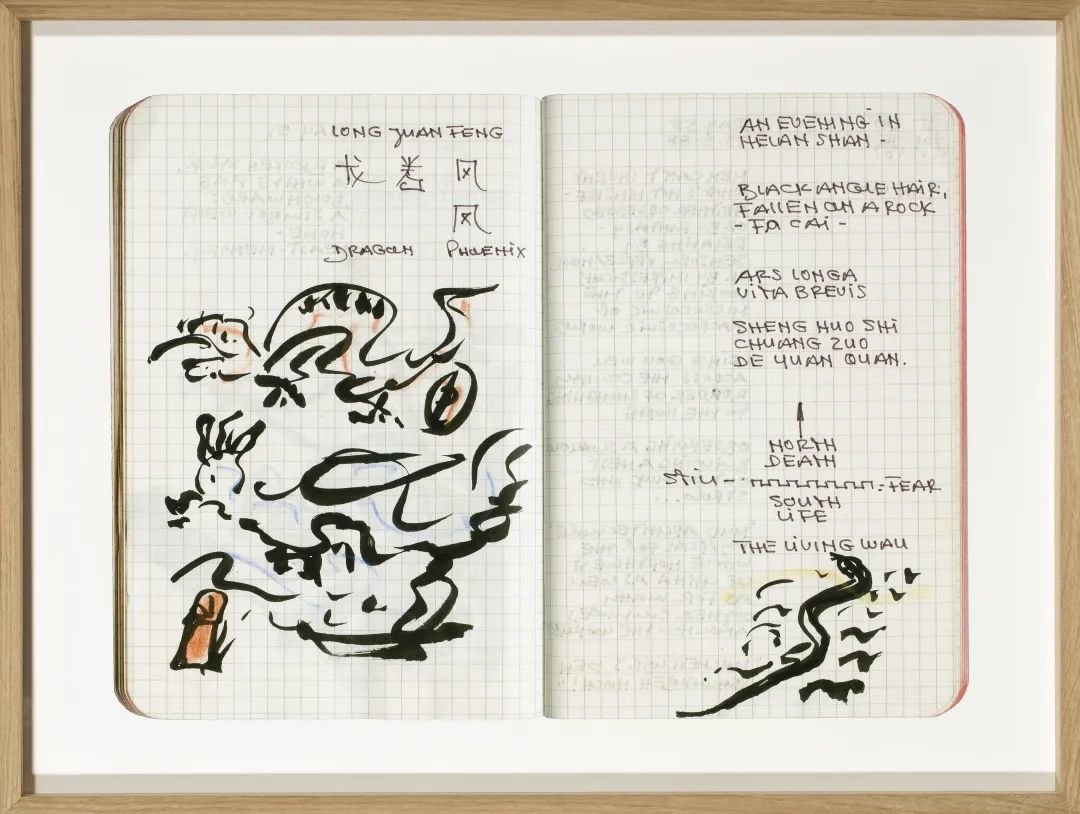 LONG JUAN FENG
龙 卷 风
风
DRAGON PHOENIX
AN EVENING IN
HELAN SHAN -
BLACK ANGLE HAIR,
FALLEN ON A ROCK
- FA CAI -
ARS LONGA
VITA BREVIS
SHENG HUO SHI
CHUANG ZUO
DE YUAN QUAN.
NORTH
DEATH
FEAR
SOUTH
LIFE
THE LIVING WALL